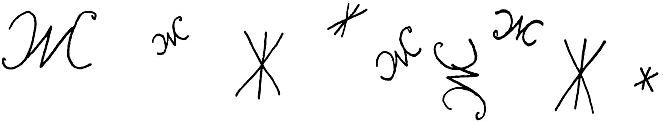 Ж ж Ж ж ж Ж ж Ж ж